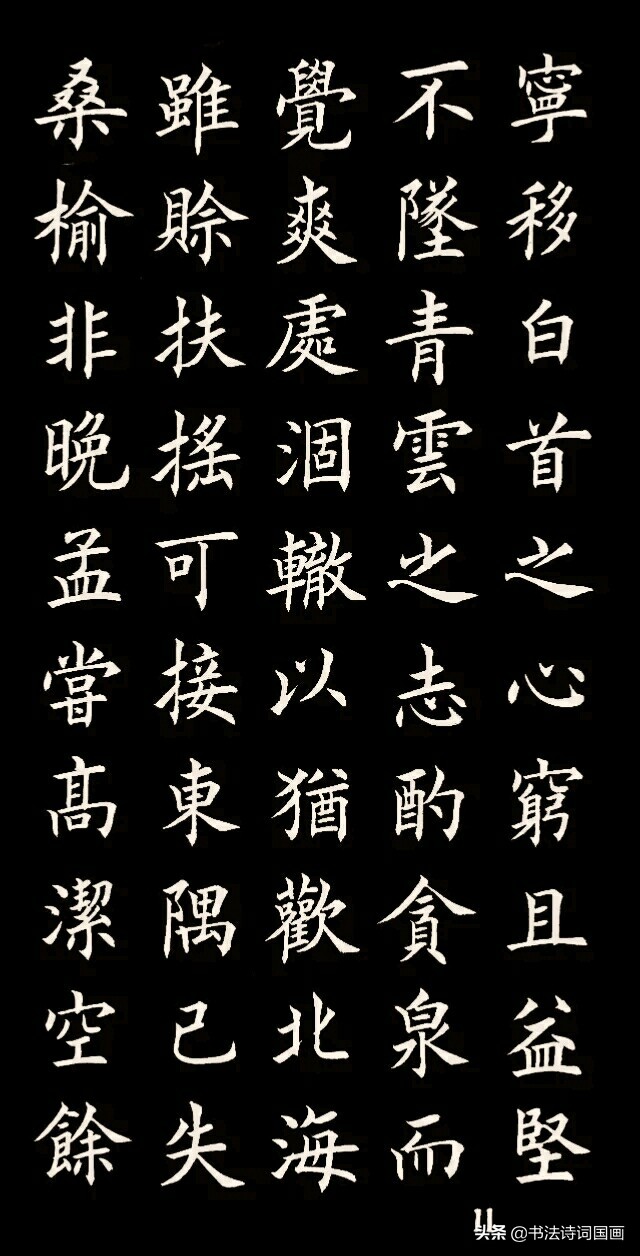 寧移白首之心窮且益堅
不墜青雲之志酌貪泉而
覺爽處涸轍以猶歡北海
雖賒扶搖可接東隅已失
桑榆非晚孟嘗高潔空餘
11
头条 @书法诗词国画